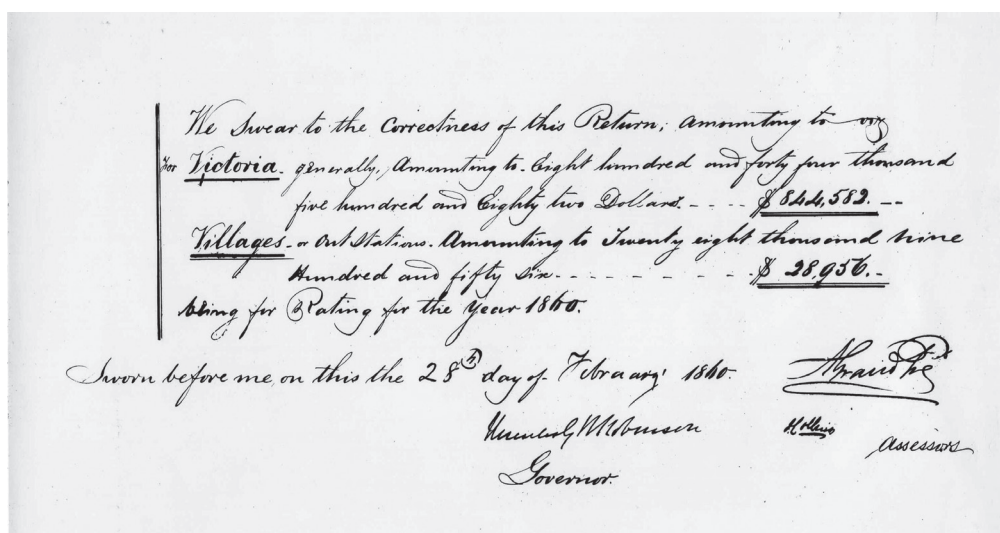 We Swear to the Correctness of this Return; amounting to viz
For Victoria - generally, Amounting to - Eight hundred and forty four thousand
five hundred and Eighty two Dollars. - - - - $ 844,582. - -
Villages - or Out Stations. Amounting to Twenty eight thousand nine
Hundred and fifty Six - - - - - - - - - $ 28,956. -
being for Rating for the Year 1860.
Sworn before me, on this the 28th day of February 1860.
Robinson
Governor.
Assessors